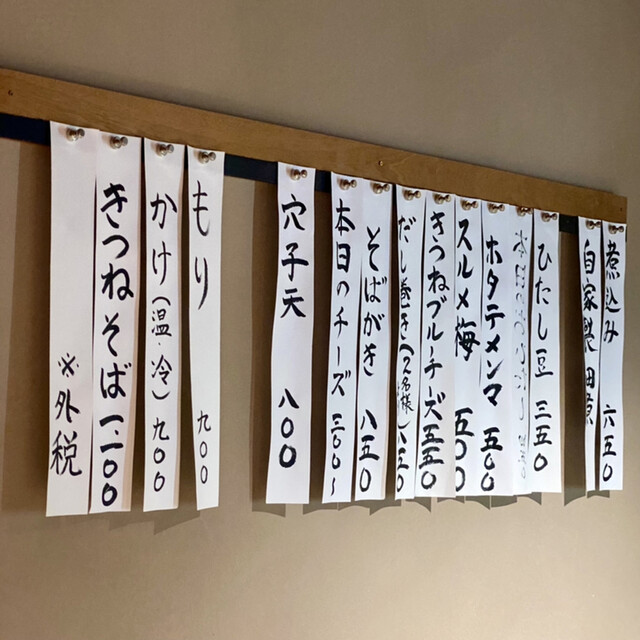 煮込み 六五〇
自家製
ひたし豆 三五〇
ホタテメンマ 五〇〇
スルメ梅 五〇〇
きつねブルーチーズ 五五〇
だし巻き(2名様) 八五〇
そばがき 八五〇
本日のチーズ 三〇〇〜
穴子天 八〇〇
もり 九〇〇
かけ(温・冷) 九〇〇
きつねそば 一、一〇〇
※外税